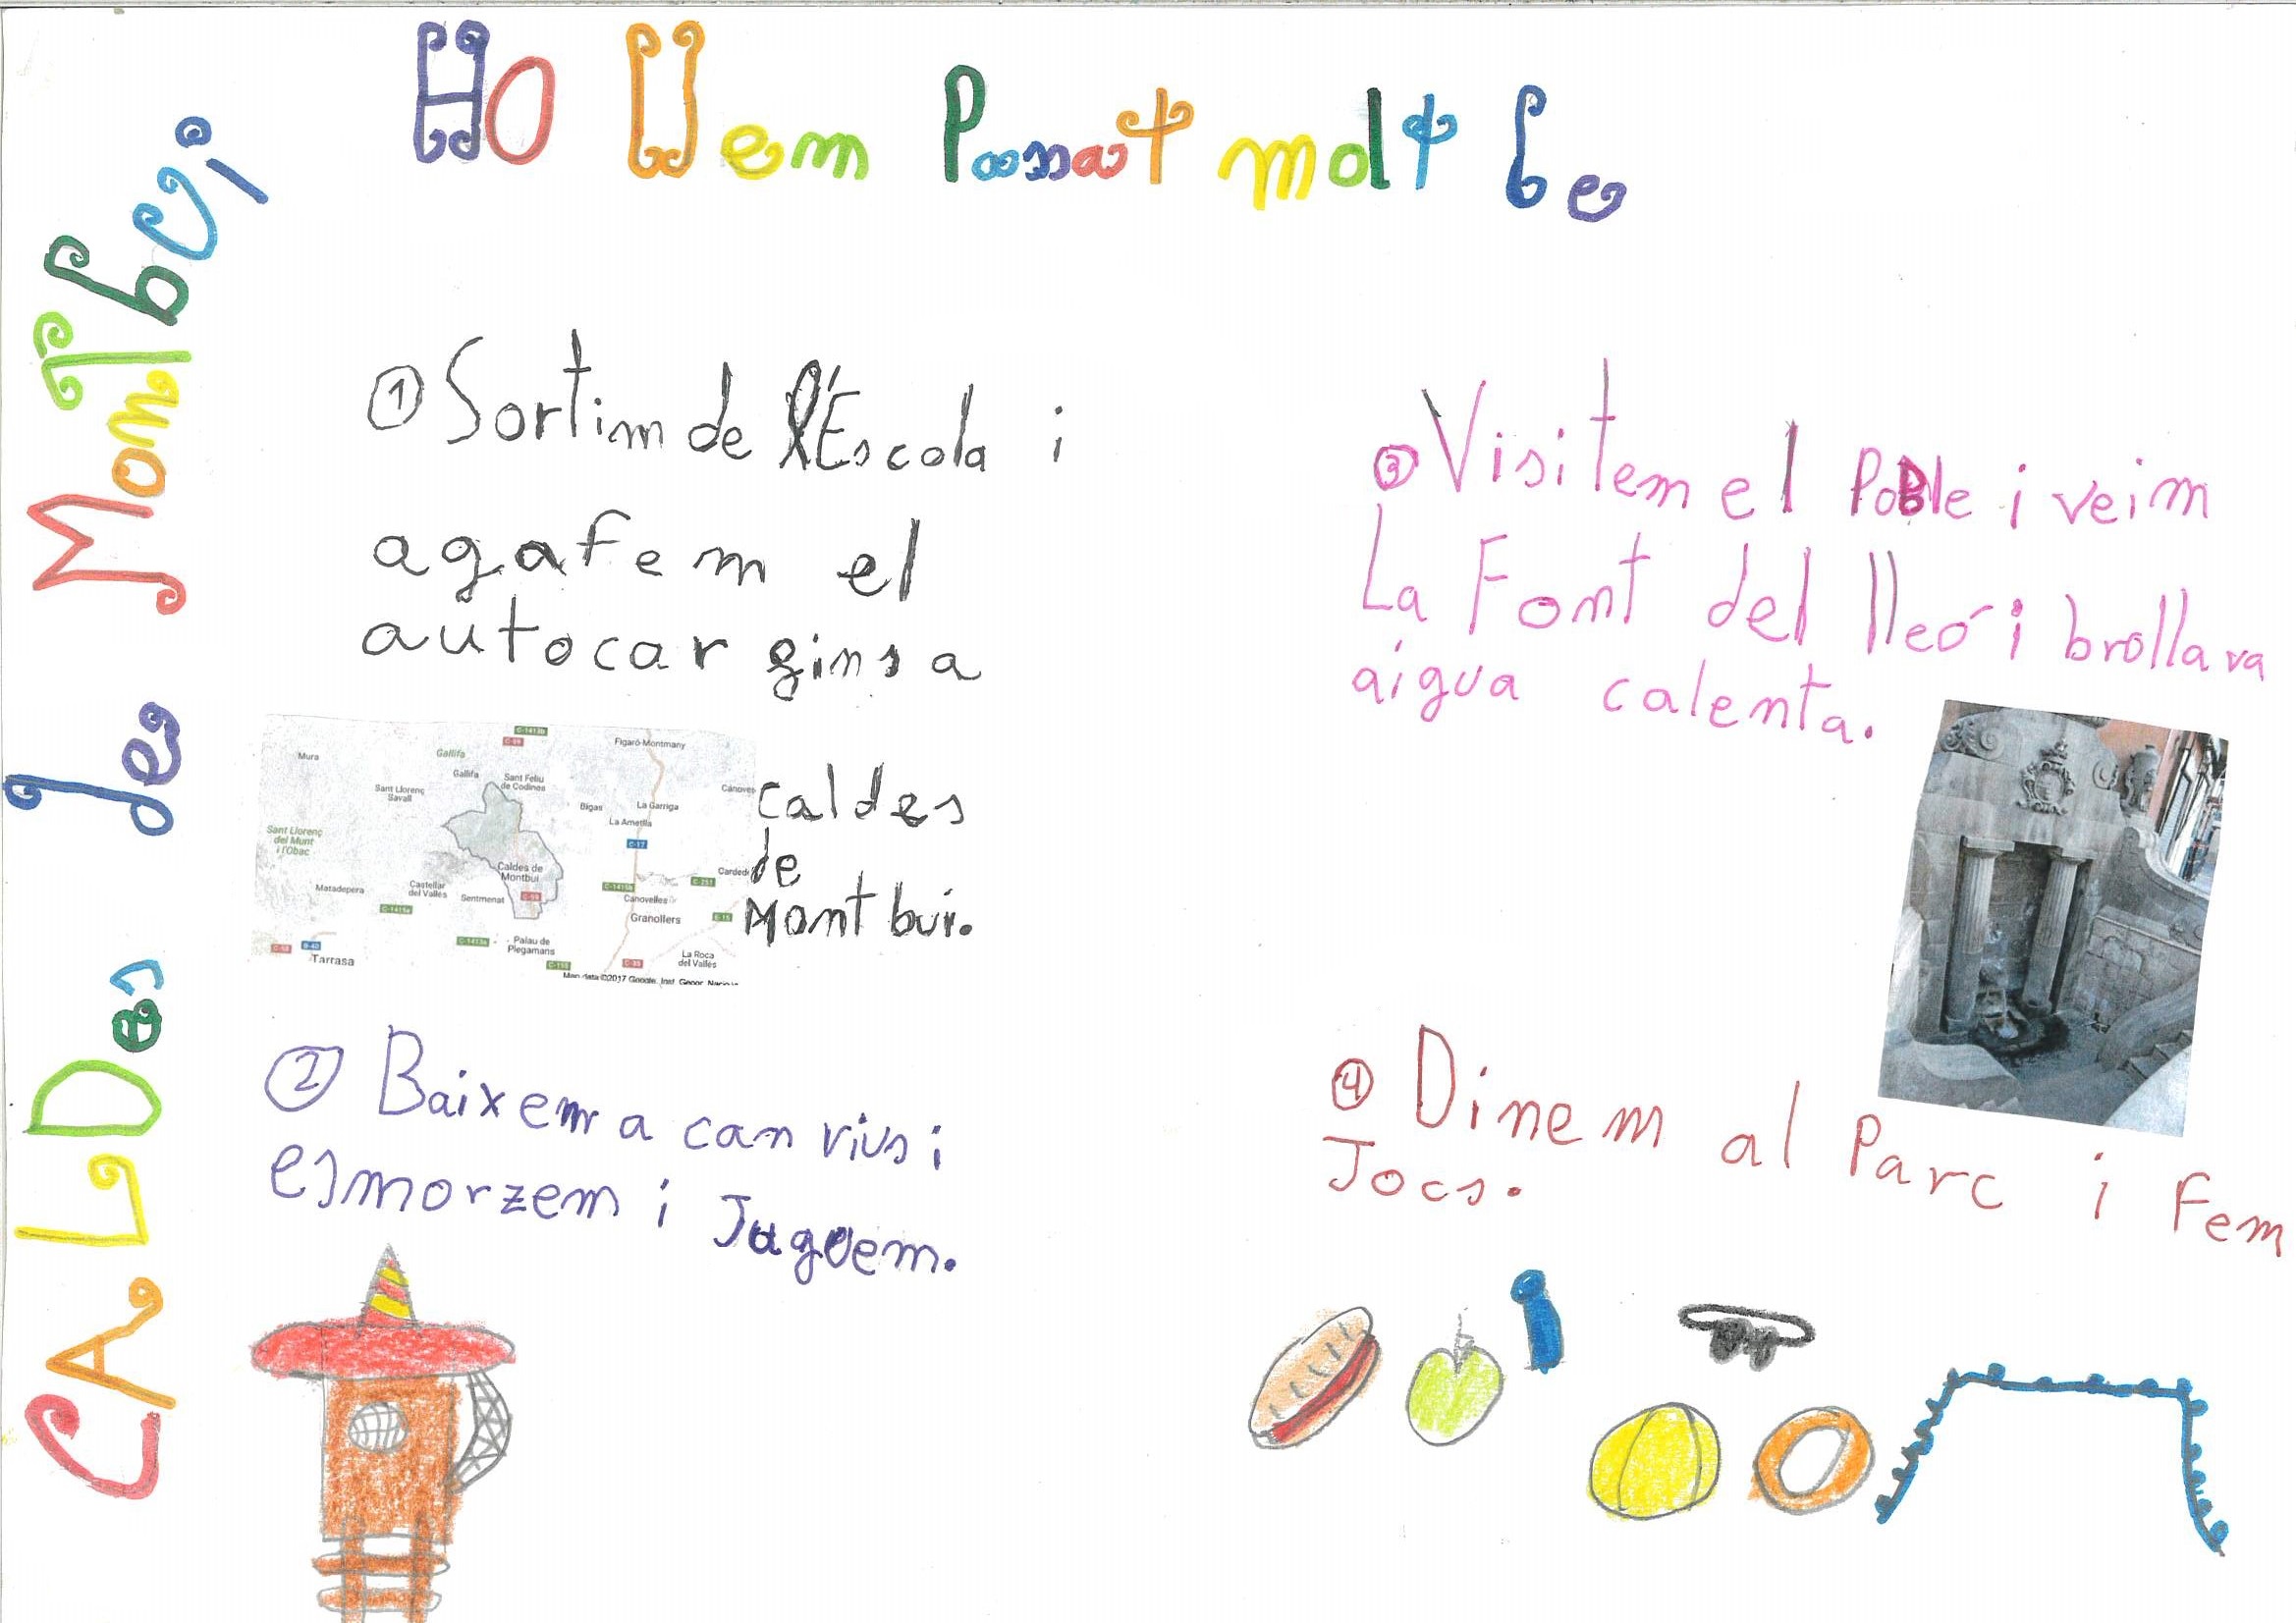 HO Hem Passat molt be
CALDes de MonTbui
① Sortim de l'Escola i
agafem el
autocar gins a
caldes
de
Montbui.
Mura
Gallifa
Gallifa
Sant Feliu
de Codines
Figaró-Montmany
Sant Llorenç
Savall
Bigas
La Garriga
Cànoves
La Ametlla
Sant Llorenç
del Munt
i l'Obac
C-17
Caldes de
Montbui
Matadepera
Castellar
del Vallès
Sentmenat
C-59
C-1415b
C-251
Cardede
Canovelles
Granollers
C-1415a
Palau de
Plegamans
La Roca
del Vallès
Tarrasa
Map data ©2017 Google, Inst. Geogr. Nacio
② Baixem a can vius i
esmorzem i Juguem.
③ Visitem el PoBle i veim
La Font del lleó i brollava
aigua calenta.
④ Dinem al Parc i Fem
Jocs.